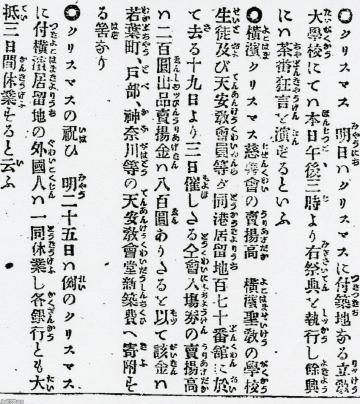 ◎クリスマス　明日ハクリスマスに付築地なる立教
大學校にてハ本日午後三時より右祭典を執行し餘興
にハ茶術狂言を演ずるといふ
◎横濱クリスマス慈善會の賣揚高　横濱聖教の學校
生徒及び天安教會員等が同港居留地百七十番館に於
て去る十九日より三日催しさる仝會入塲券の賣揚高
ハ二百圓出品賣揚金ハ八百圓ありさるを以て該金ハ
若葉町、戸部、神奈川等の天安教會堂新築費へ寄附す
る筈なり
◎クリスマスの祝ひ　明二十五日ハ例のクリスマス
に付横濱居留地の外國人ハ一同休業し各銀行とも大
抵三日間休業すると云ふ